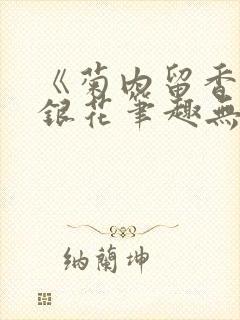 《菊内留香
銀花筆趣無
納蘭坤